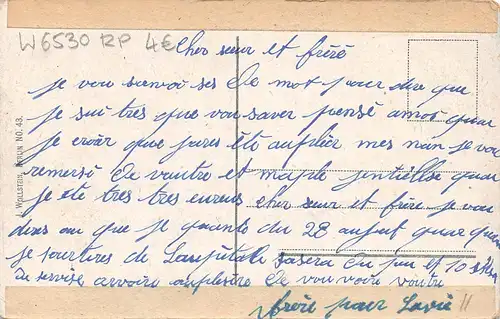 W6530 RP 4€
Cher sœur et fréré
je vou sanvoi ses De mot pour dire que
je sui tres que vou saver pensé a moi quar
je croiér que javes été aublier mes nan je vou
remersé De vautre et maple jentillse quar
je ete tres eureus cher sœur et frére je vou
dires au que je quante du 28 aufut quar quan
je sourtires de Laupitale sasera Du pui el 10
Du servise avoire auplesire De vou voire vautre
frére pour Lavie 11
WOLLSTEIN, BERLIN NO. 43.